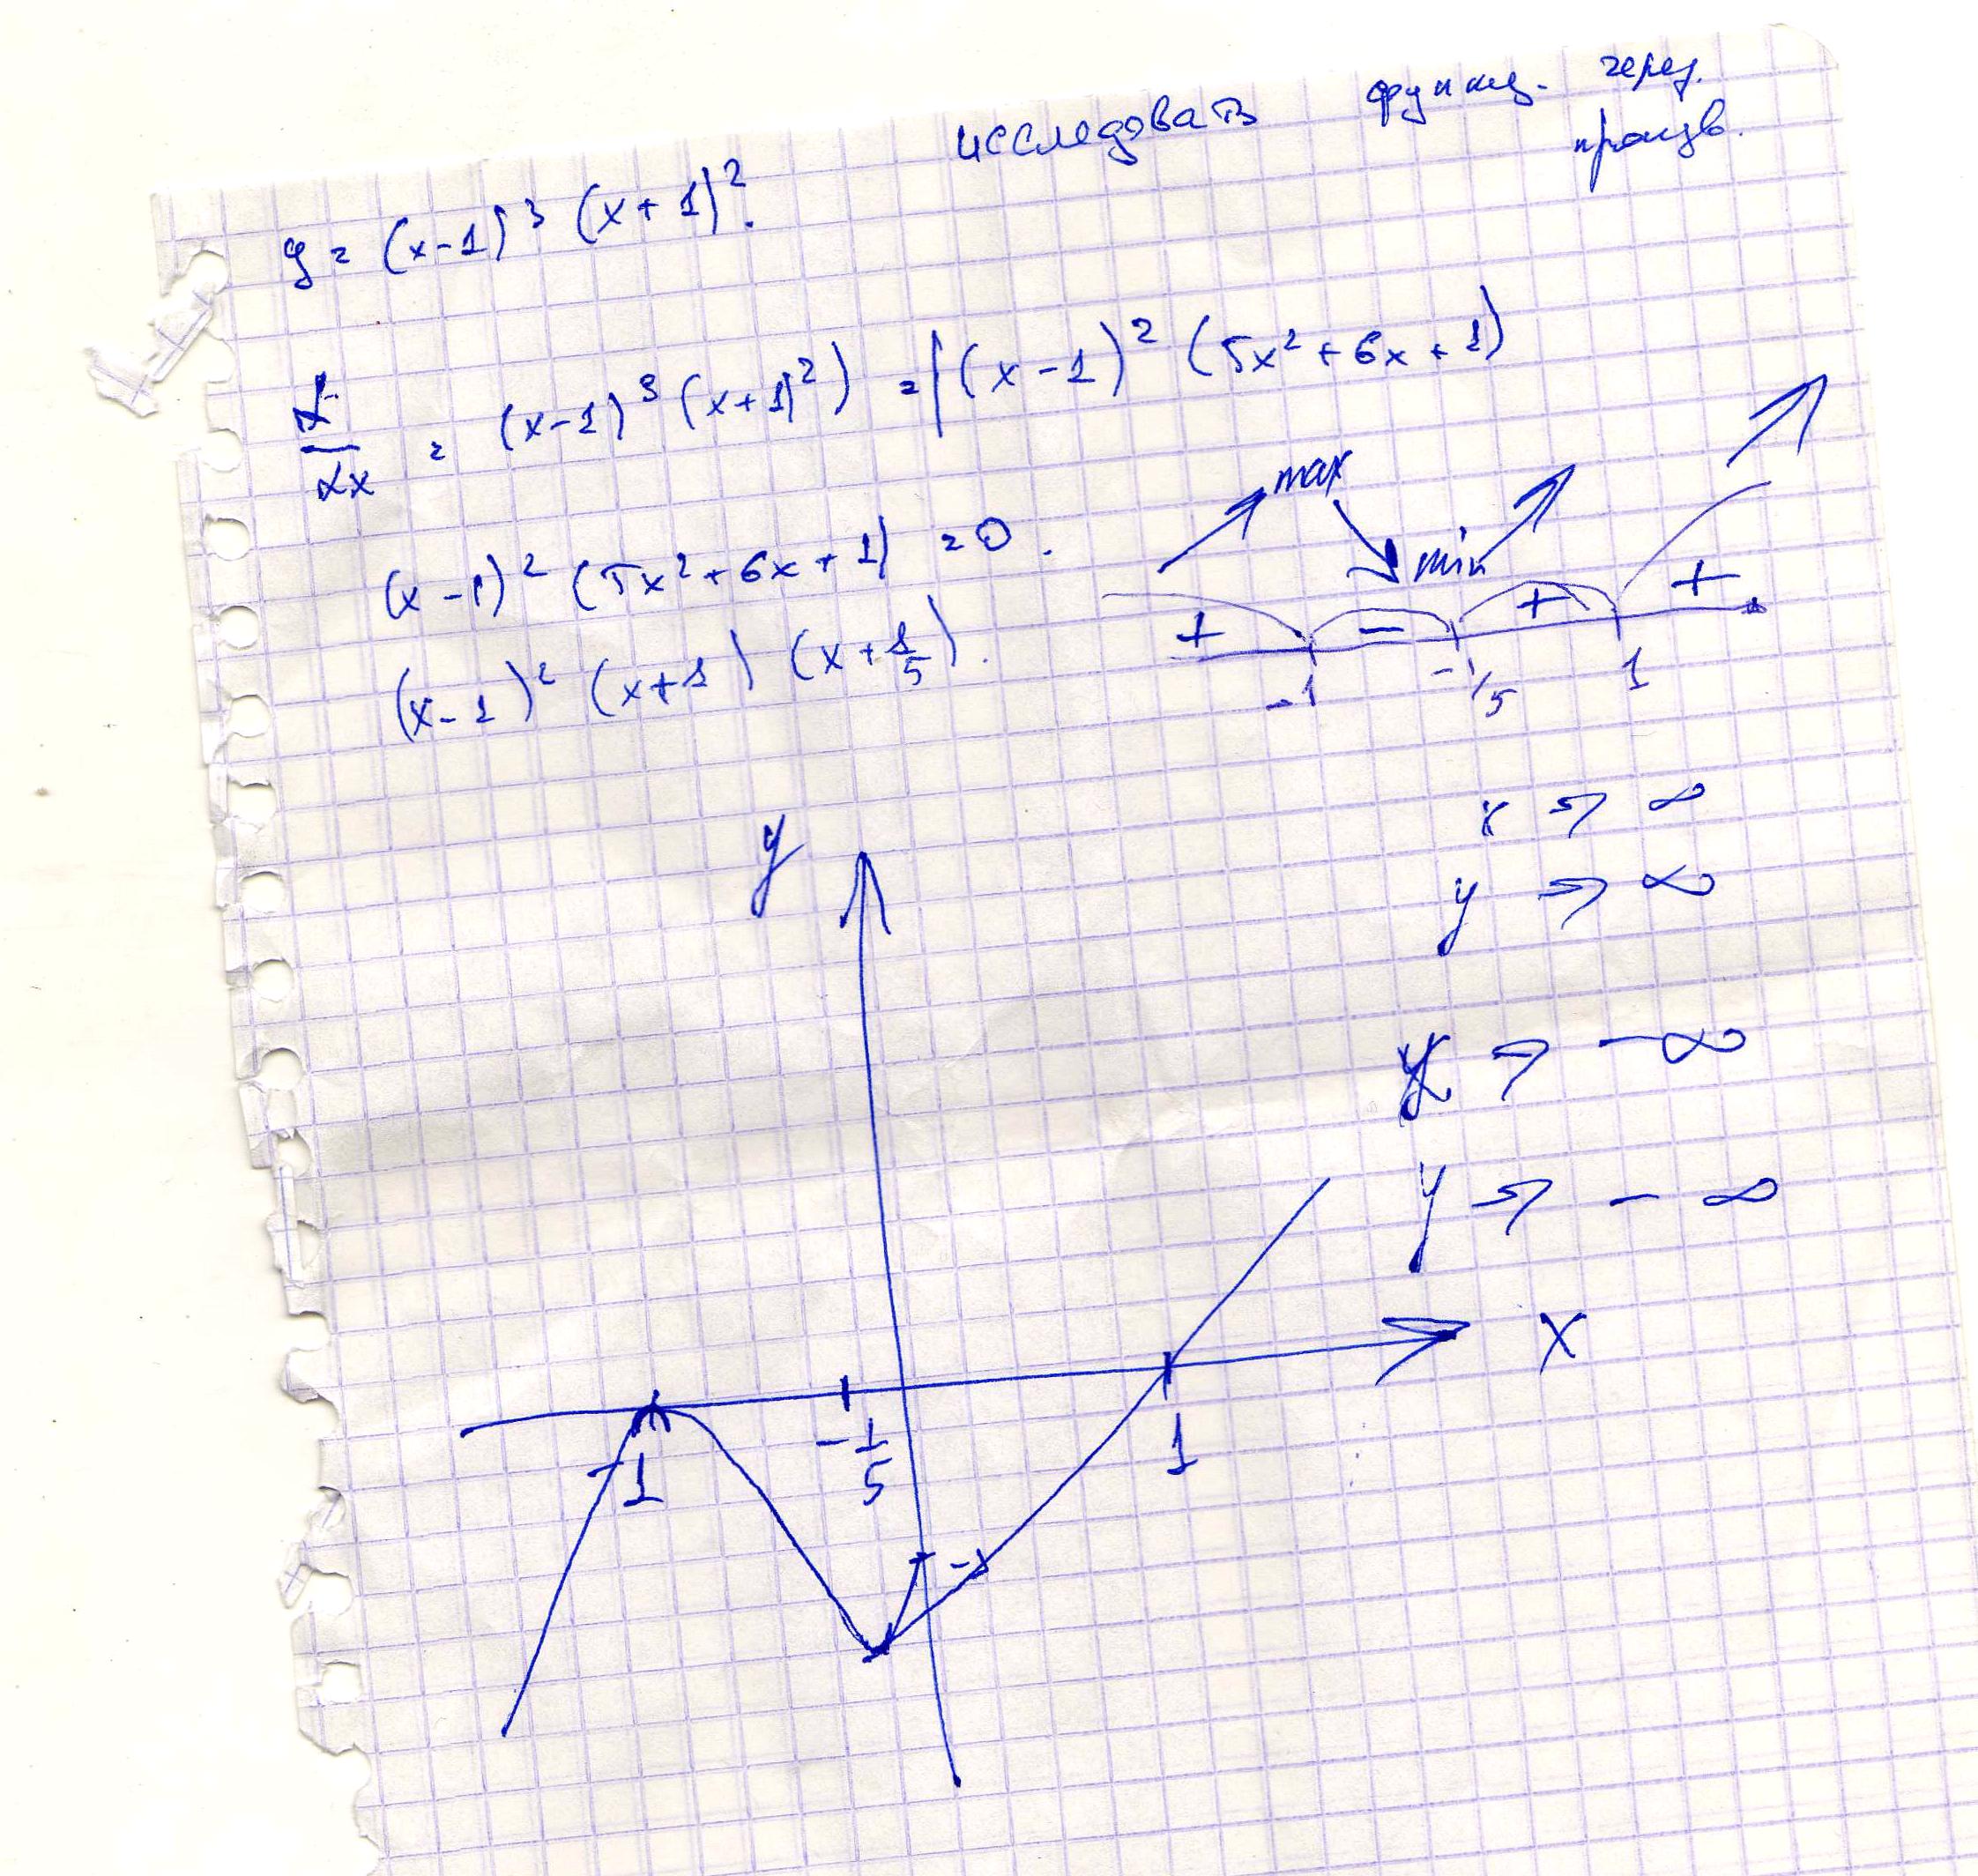 исследовать функц. через.
произв.
y = (x-1)³ (x+1)².
d/dx = (x-1)³ (x+1)²) = (x-1)² (5x²+6x+1)
max
min
(x-1)² (5x²+6x+1) = 0.
+ - + +
(x-1)² (x+1) (x+1/5).
-1 -1/5 1
x → ∞
y
y → ∞
x → -∞
y → -∞
x
-1 -1/5 1